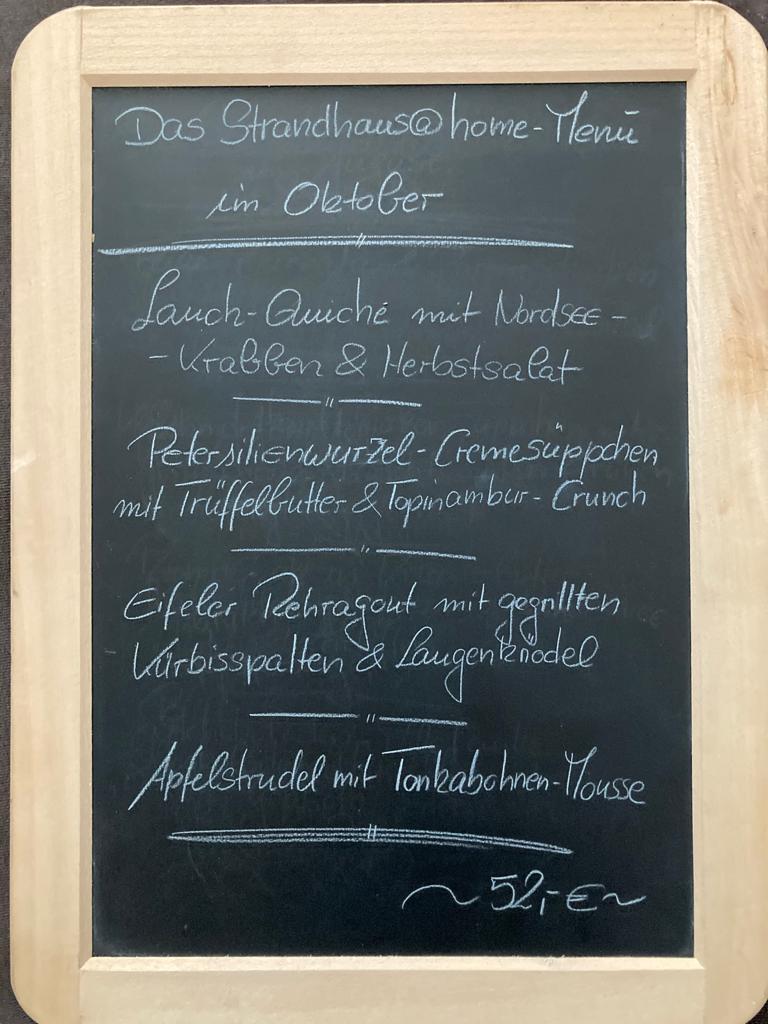 Das Strandhaus@home-Menü
im Oktober
Lauch-Quiché mit Nordsee-
-Krabben & Herbstsalat
Petersilienwurzel-Cremesüppchen
mit Trüffelbutter & Topinambur-Crunch
Eifeler Rehragout mit gegrillten
Kürbisspalten & Laugenknödel
Apfelstrudel mit Tonkabohnen-Mousse
~52,-€~